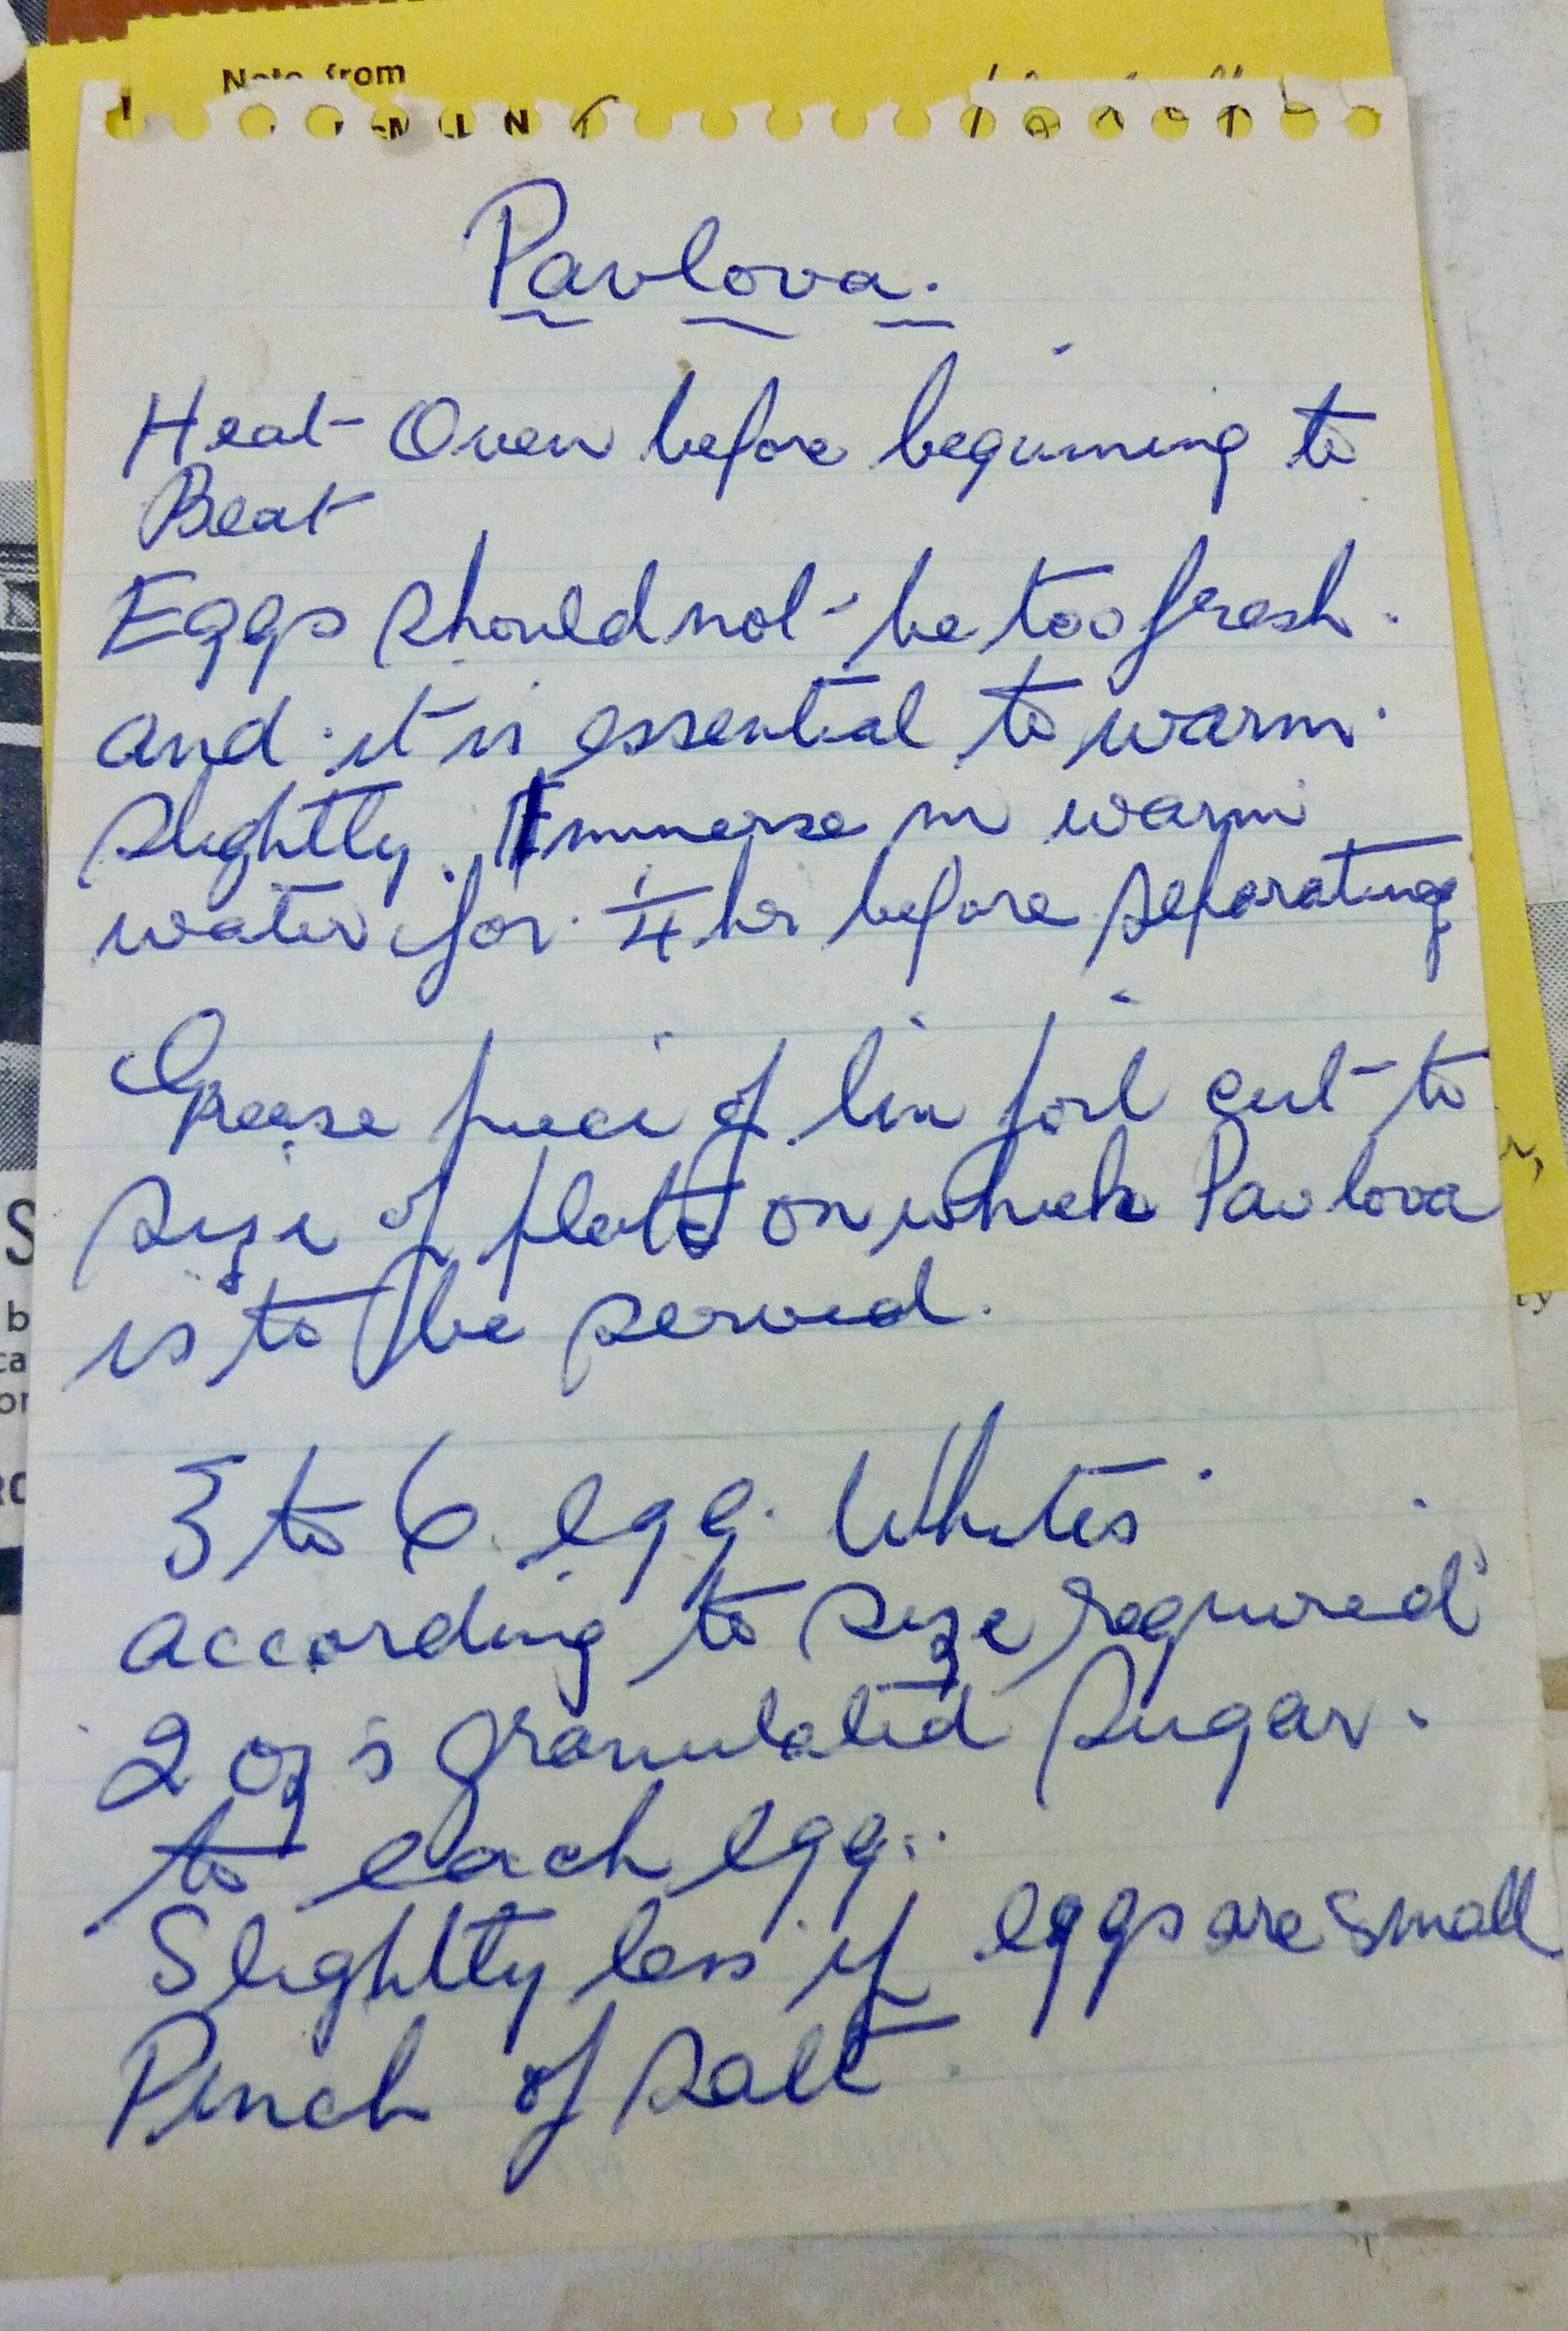 Note from
Pavlova.
Heat Oven before beginning to
Beat
Eggs should not be too fresh.
and it is essential to warm.
slightly. Immerse in warm
water for 1/4 hr before separating
Grease piece of tin foil cut to
size of plate on which Pavlova
is to be served.
3 to 6 egg Whites
according to size required
2 ozs granulated sugar.
to each egg.
Slightly less if eggs are small
Pinch of salt.